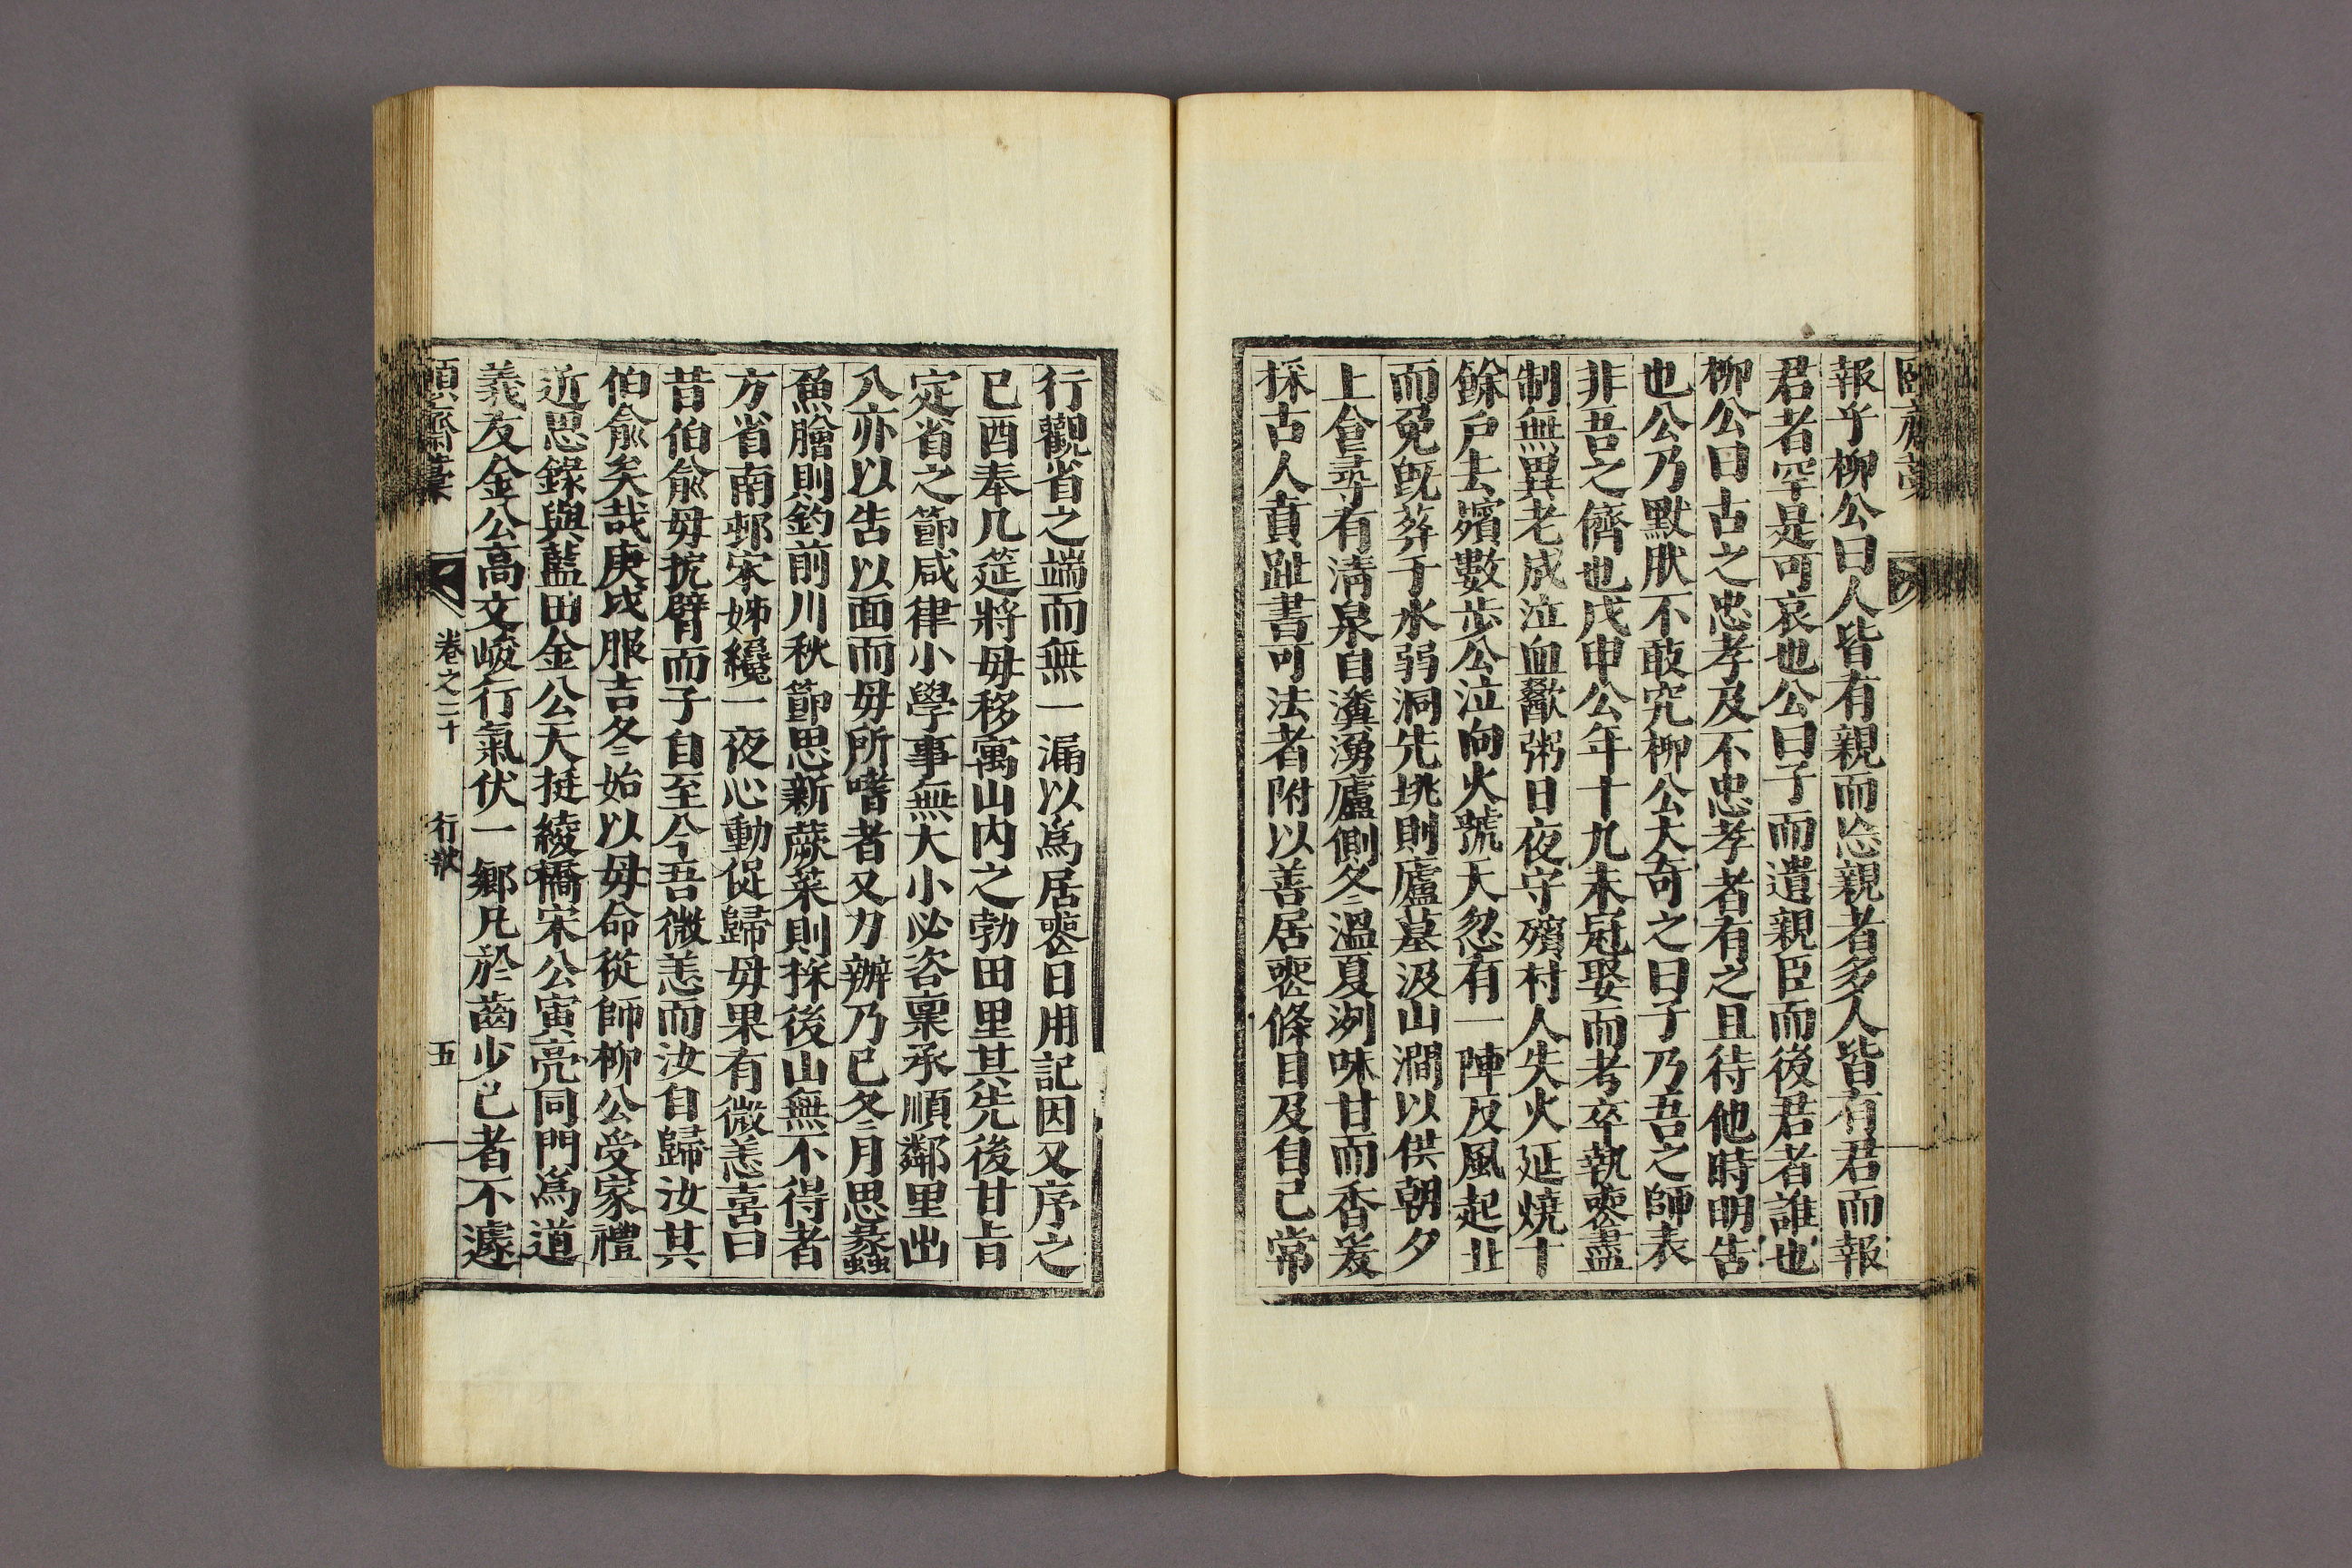 報乎柳公曰人皆有親而忘親者多人皆有君而報
君者罕是可哀也公曰子而遺親臣而後君者誰也
柳公曰古之忠孝及不忠孝者有之且待他時明告
也公乃默肰不敢究柳公大奇之曰子乃吾之師表
非吾之儕也戊申公年十九未冠娶而考卒執喪盡
制無異老成泣血歠粥日夜守殯村人失火延燒十
餘戶去殯數步公泣向火號天忽有一陣反風起止
而免旣葬于水弱洞先垗則廬墓汲山澗以供朝夕
上食尋有淸泉自瀵湧廬側冬溫夏洌味甘而香爰
採古人眞趾書可法者附以善居喪條目及自己常
行觀省之端而無一漏以爲居喪日用記因又序之
已酉奉几筵將毋移寓山內之勃田里其先後甘旨
定省之節咸律小學事無大小必咨稟承順鄰里出
入亦以告以面而毋所嗜者又力辦乃已冬月思彖蟲
魚膾則釣前川秋節思新蕨菜則採後山無不得者
方省南邨宋姊纔一夜心動促歸毋果有微恙喜曰
昔伯兪毋扼臂而子自至今吾微恙而汝自歸汝其
伯兪矣哉庚戌服吉冬始以毋命從師柳公受家禮
近思錄與藍田金公大挺綾橋宋公寅亮同門爲道
義友金公高文峻行氣伏一鄉凡於齒少已者不遽
卷之二十
行狀
五